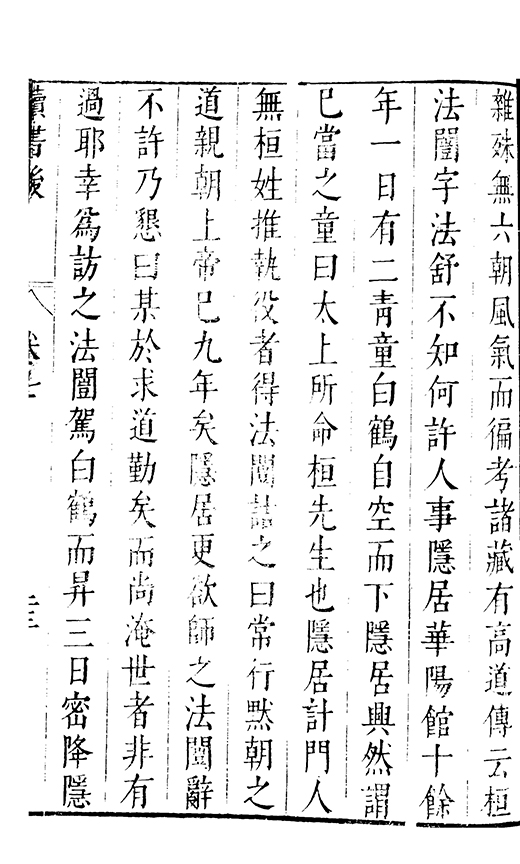 雜殊無六朝風氣而徧考諸藏有高道傳云桓
法闓字法舒不知何許人事隱居華陽館十餘
年一日有二青童白鶴自空而下隱居興然謂
已當之童曰太上所命桓先生也隱居計門人
無桓姓推執役者得法闓詰之曰常行黙朝之
道親朝上帝已九年矣隱居更欲師之法闓辭
不許乃懇曰某於求道勤矣而尚淹世者非有
過耶幸爲訪之法闓駕白鶴而昇三日密降隱
讀書後
卷七